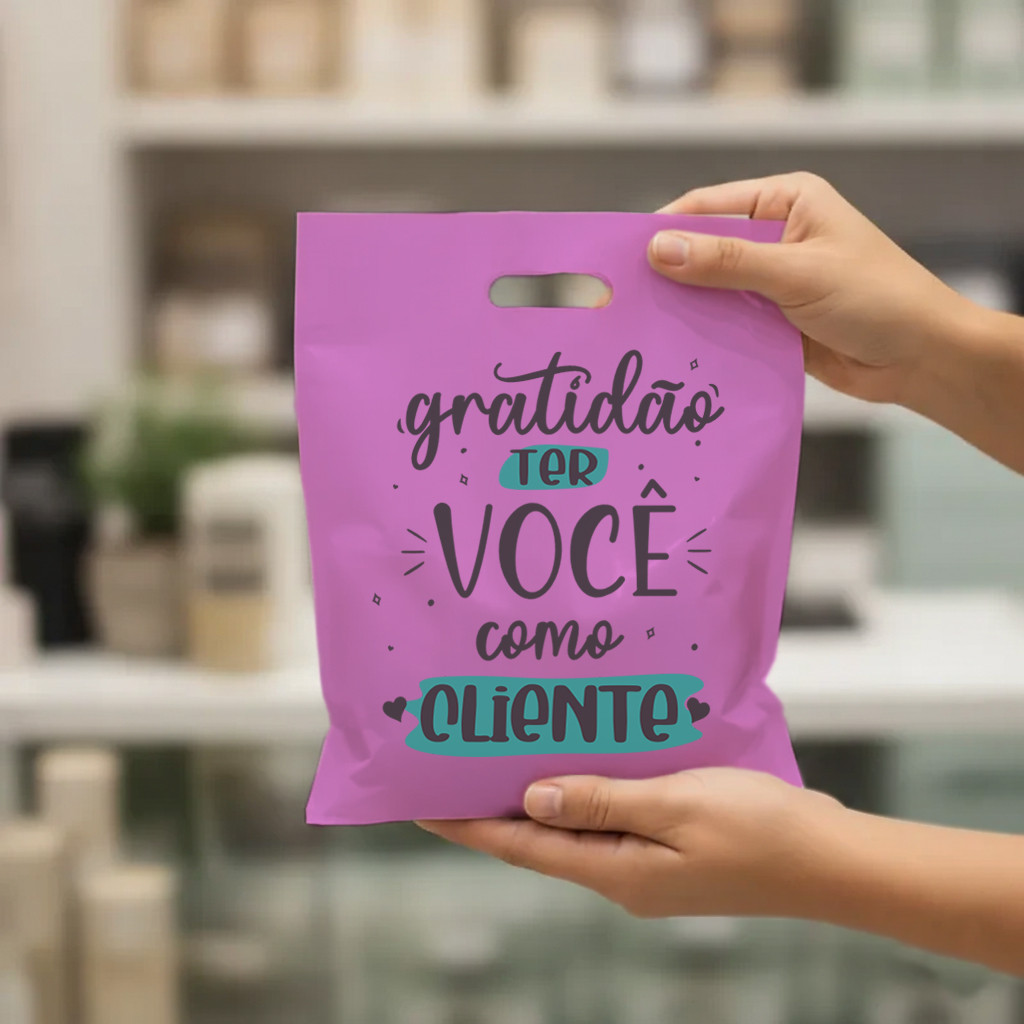 gratidão
TER
VOCÊ
como
CLIENTE